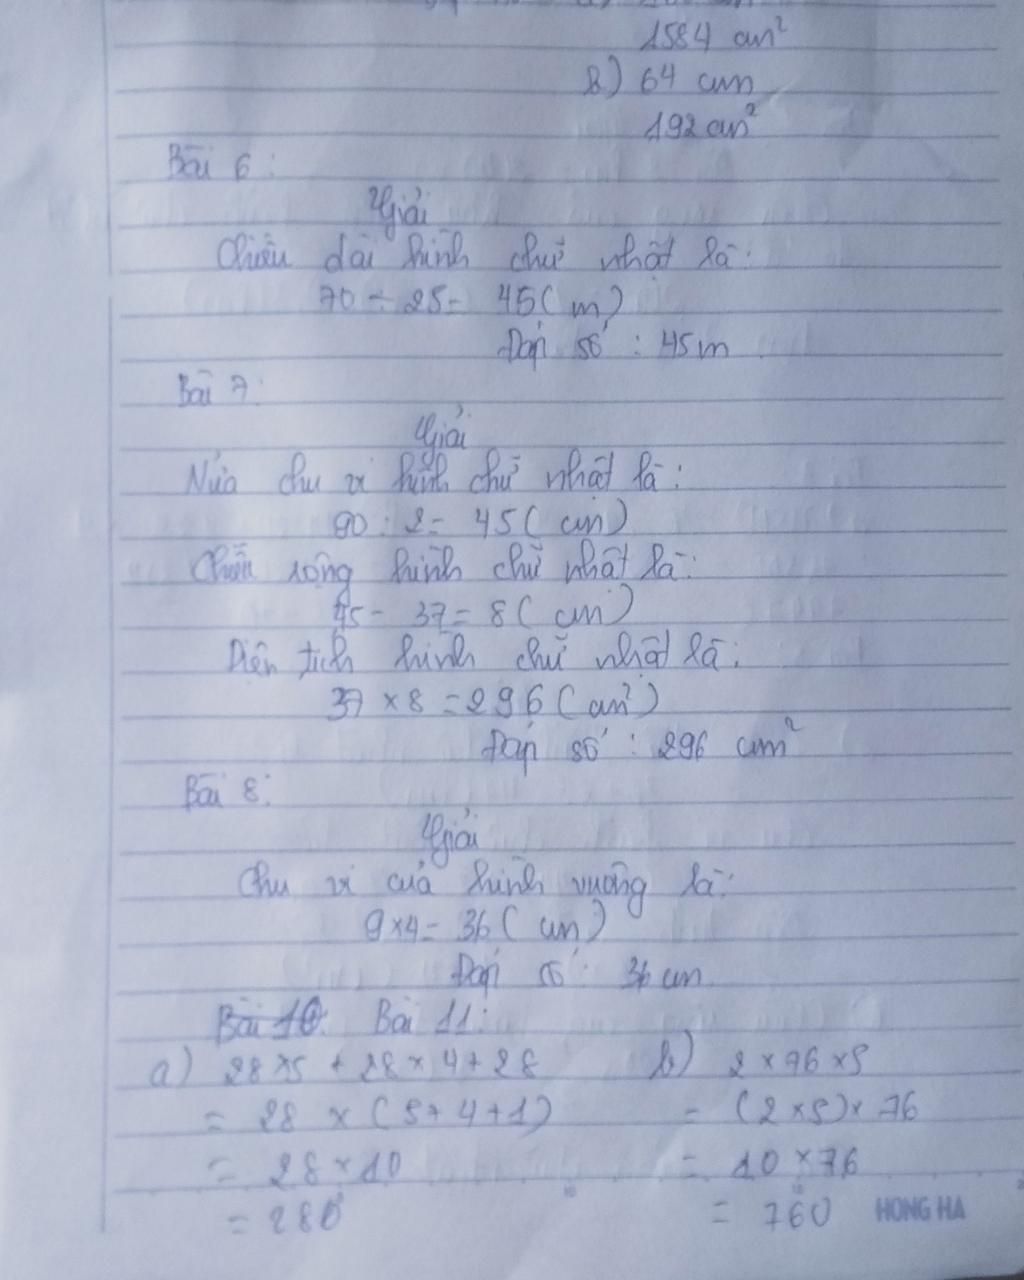 1584 cm²
b) 64 cm
192 cm²
Bài 6:
Giải
Chiều dài hình chữ nhật là:
70 - 25 = 45 (m)
Đáp số : 45m
Bài 7:
Giải
Nửa chu vi hình chữ nhật là:
90 : 2 = 45 (cm)
Chiều rộng hình chữ nhật là:
45 - 37 = 8 (cm)
Diện tích hình chữ nhật là:
37 × 8 = 296 (cm²)
Đáp số : 296 cm²
Bài 8:
Giải
Chu vi của hình vuông là:
9 × 4 = 36 (cm)
Đáp số : 36 cm
Bài 10: Bài 11:
a) 28 × 5 + 28 × 4 + 28 b) 2 × 76 × 5
= 28 × (5 + 4 + 1) = (2 × 5) × 76
= 28 × 10 = 10 × 76
= 280 = 760 HONG HA